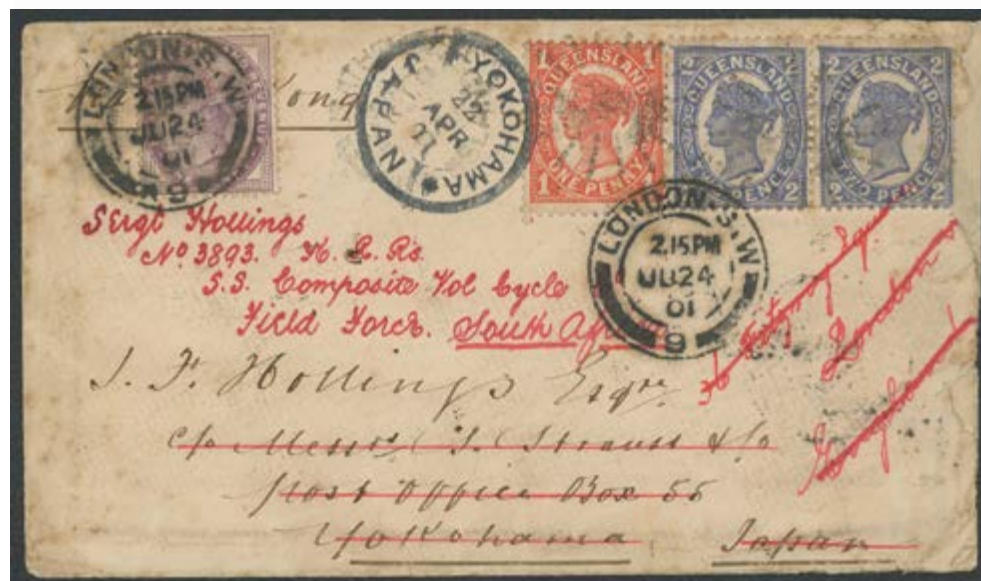 LONDON.S.W
2.15PM
JU 24
01
9
Kong
YOKOHAMA
22
APR
JAPAN
QUEENSLAND
1 ONE PENNY 1
QUEENSLAND
2 PENCE 2
QUEENSLAND
2 TWO PENCE 2
LONDON.S.W
2.15PM
JU 24
01
9
Sergt Hollings
No 3893. H. R. Rs.
S.S. Composite Vol Cycle
Field Force. South Africa
London
England
J. F. Hollings Esqre
c/o Messrs S. Strauss & Co
Post Office Box 55
Yokohama Japan